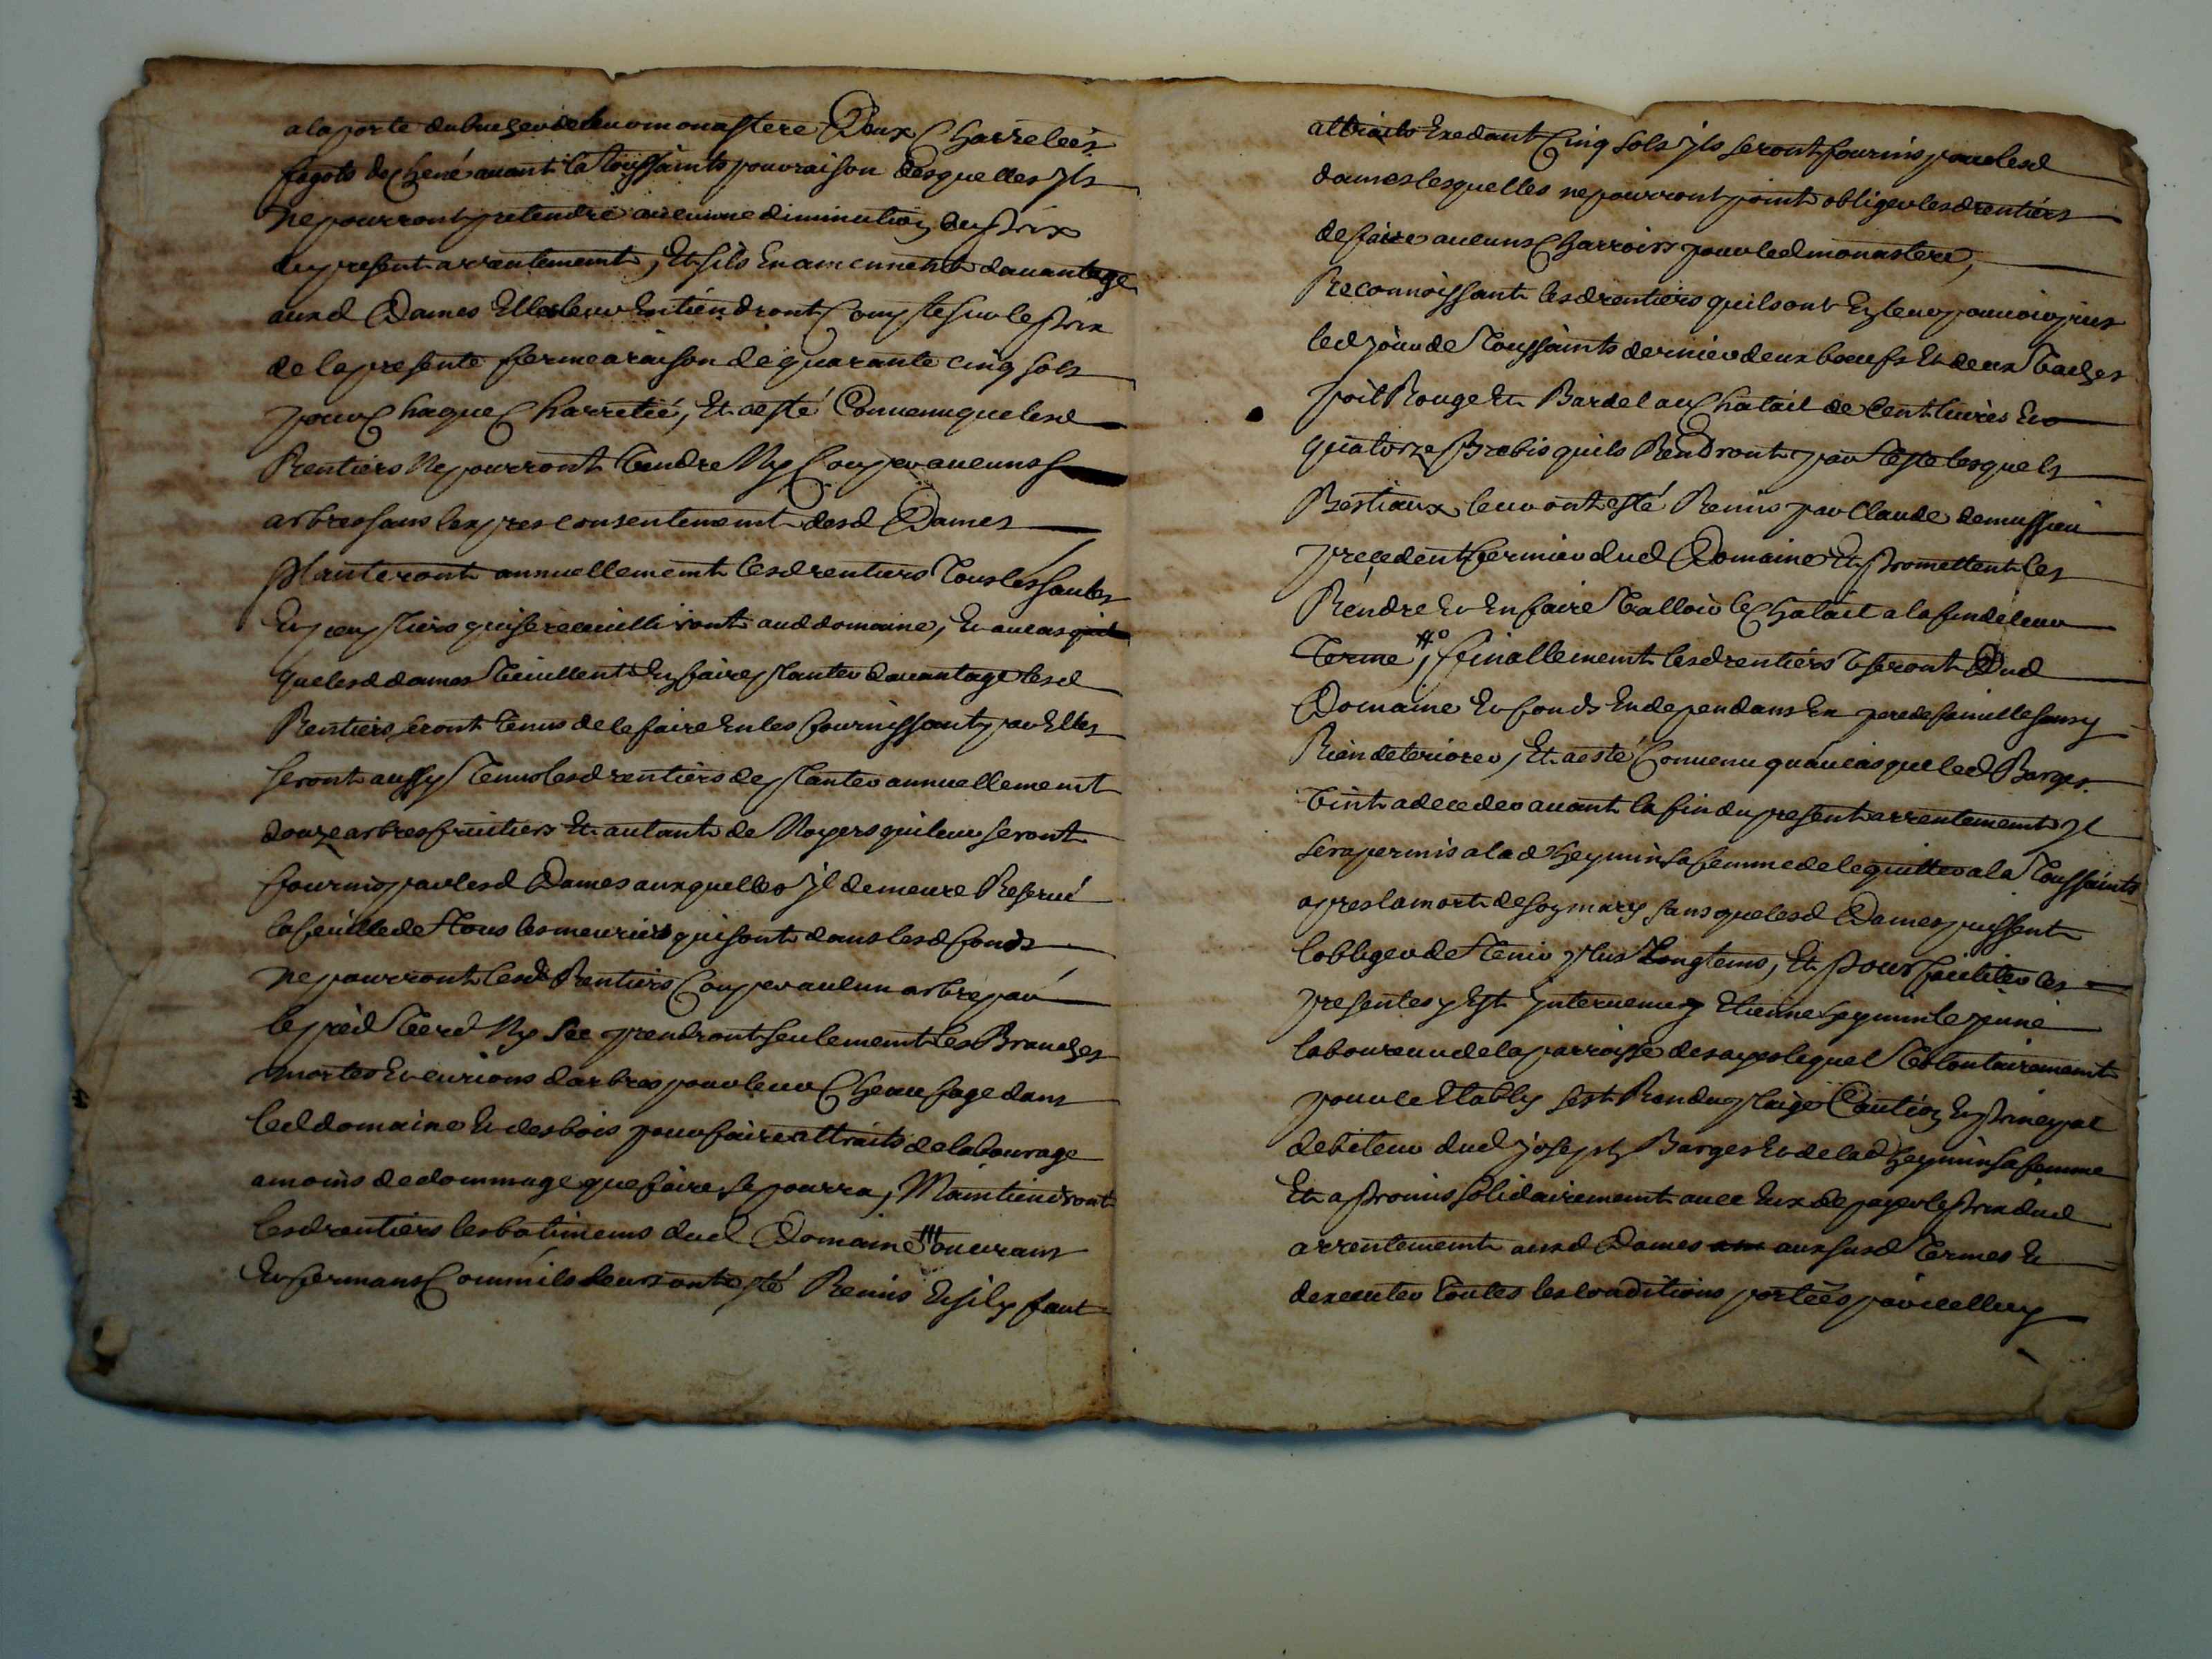 a la porte du bucher de leur monastere Deux Charretées
fagots de chene auant la toussaints pour raison desquelles jls
ne pourront pretendre aucunne diminution du prix
du present arrentement, Et sils En amennent dauantage
auxd Dames Elles leur En tiendront Compte sur le prix
de la presente ferme a raison de quarante cinq sols
pour Chaque Charretié, Et a esté Conuenu que lesd
Rentiers Ne pourront Vendre Ny Couper aucuns
arbres sans lexpres consentement desd Dames
planteront annuellement lesd rentiers Tous les saules
Et peupliers qui se receuilliront aud domaine, Et au cas
que lesd dames Veuillent En faire planter dauantage lesd
Rentiers seront tenus de le faire En les fournissant par Elles
seront aussy Tenus lesd rentiers de planter annuellement
douze arbres fruitiers Et autant de Noyers qui leur seront
fournis par lesd Dames auxquelles Jl demeure Reserué
la feuille de Tous les meuriers qui sont dans lesd fonds
ne pourront lesd Rentiers Couper aucun arbre par
le pied Verd Ny Sec prendront seulement les Branches
mortes Et curions darbres pour leur Cheaufage dans
led domaine Et des bois pour faire attraits de labourage
a moins de dommage que faire se pourra, Maintiendront
lesd rentiers les batimens dud Domaine # ouurans
Et fermans Comm'ils leurs ont esté Remis Et sily faut
attraits Exedant Cinq sols jls seront fournis par lesd
dames lesquelles ne pourront point obliger lesd rentiers
de faire aucuns Charroirs pour led monastere,
Reconnoissant lesd rentiers quils ont En leur pouuoir puis
led jour de Toussaints dernier deux boeufs Et deux Vaches
poil Rouge Et Bardel au Chatail de Cent liures Et
quatorze Brebis quils Rendront par Teste lesquels
Bestiaux leur ont esté Remis par Claude demussieu
precedent fermier dud Domaine Et promettent les
Rendre Et En faire Valloir le Chatail a la fin de leur
Terme #°, finallement lesd rentiers Vseront Dud
Domaine Et fonds En dependans En pere de famille sans y
Rien deteriorer, Et a esté Conuenu quau cas que led Barges
Vint a deceder auant la fin du present arrentement Jl
sera permis a lad heymin sa femme de le quitter a la Toussaints
apres la mort de son mary sans que lesd Dames puissent
lobliger de Tenir plus Longtems, Et pour faciliter les
presentes y Est interuenu Etienne heymin le jeune
laboureur de la parroisse de lequel Volontairement
pour ce Etably sest Rendu plaige Caution Et principal
debiteur dud joseph Barges Et de lad heymin sa femme
Et a promis solidairement auec Eux de payer le prix dud
arrentement auxd Dames aux susd Termes Et
dexecuter toutes les conditions portées par icelluy